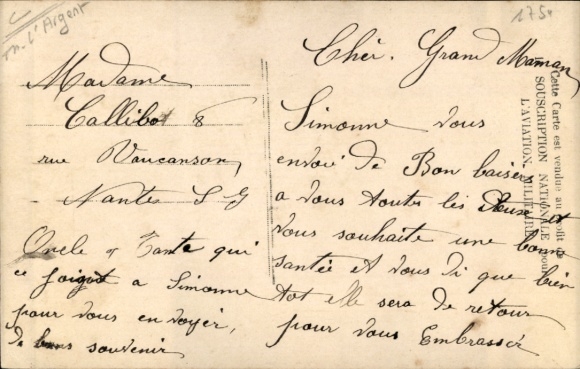 M. l'Argent
175*
Madame
Callibot 8
rue Vaucanson,
Nantes
Oncle et Tante qui
ce joigot a Simonne
pour vous envoyér,
de bons souvenir
Chér. Grand Maman,
Simonne vous
envoié de Bon baisér
a vous toutes les deux et
vous souhaite une bonne
santée et vous di que bien
tot elle sera de retour
pour vous Embrassér
Cette Carte est vendue au profit de
SOUSCRIPTION NATIONALE pour
L'AVIATION MILITAIRE